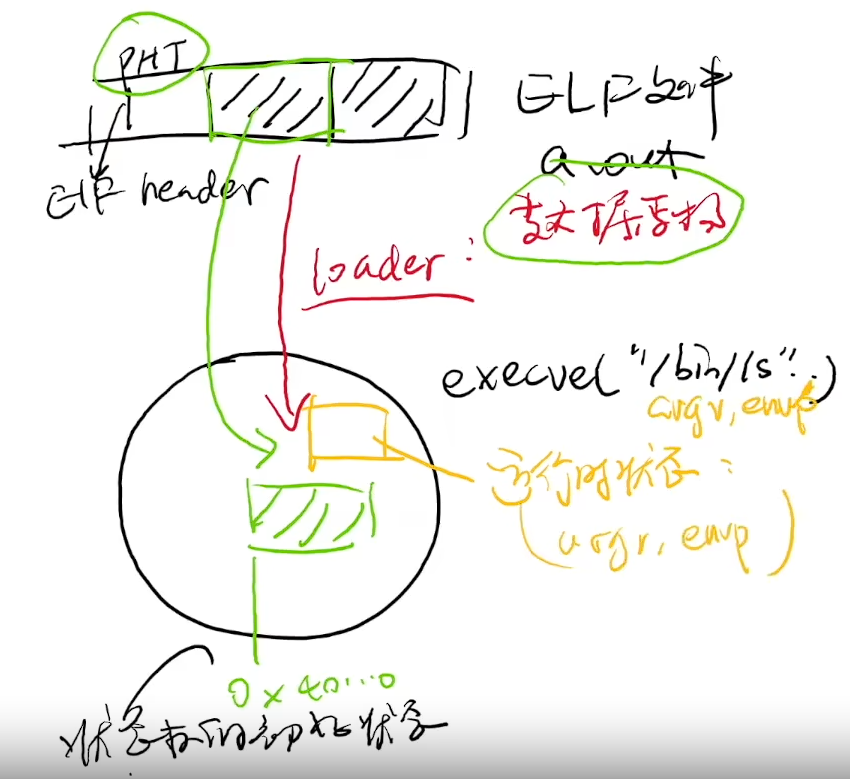 PHT
ELF文件
a.out
ELF header
数据结构
loader:
execve("/bin/ls"..)
argv, envp
运行时状态:
(argv, envp)
0x40...0
状态机的初始状态